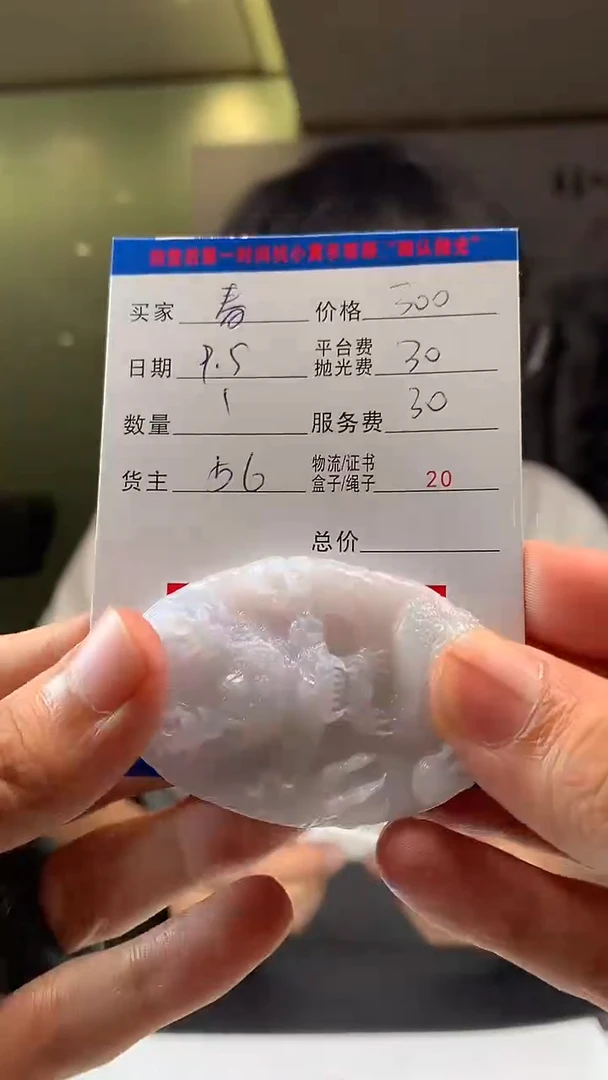 买家 春 价格 500
日期 9.5 平台费 抛光费 30
数量 1 服务费 30
货主 56 物流/证书 盒子/绳子 20
总价